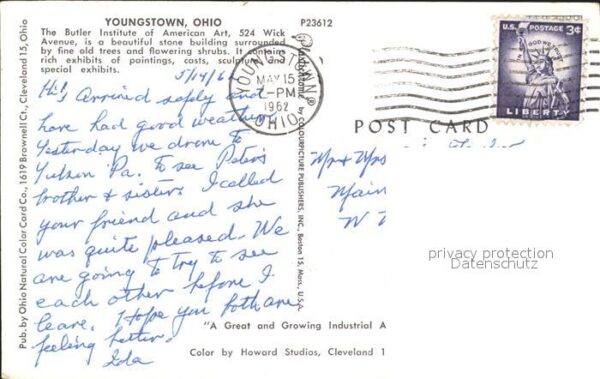 YOUNGSTOWN, OHIO
The Butler Institute of American Art, 524 Wick
Avenue, is a beautiful stone building surrounded
by fine old trees and flowering shrubs. It contains
rich exhibits of paintings, casts, sculpture and
special exhibits.
P23612
5/14/62
Hi! Arrived safely and
have had good weather.
Yesterday we drove to
Pa. to see Peter's
brother & sister. I called
your friend and she
was quite pleased. We
are going to try to see
each other before I
leave. Hope you both are
feeling better.
Ida
Pub. by Ohio Natural Color Card Co., 1619 Brownell Ct., Cleveland 15, Ohio
Plastichrome ® by COLOURPICTURE PUBLISHERS, INC., Boston 15, Mass.
YOUNGSTOWN
MAY 15
-PM
1962
OHIO
U.S. POSTAGE 3¢
IN GOD WE TRUST
LIBERTY
POST CARD
Mr & Mrs
Main
W
privacy protection
Datenschutz
"A Great and Growing Industrial A
Color by Howard Studios, Cleveland 1